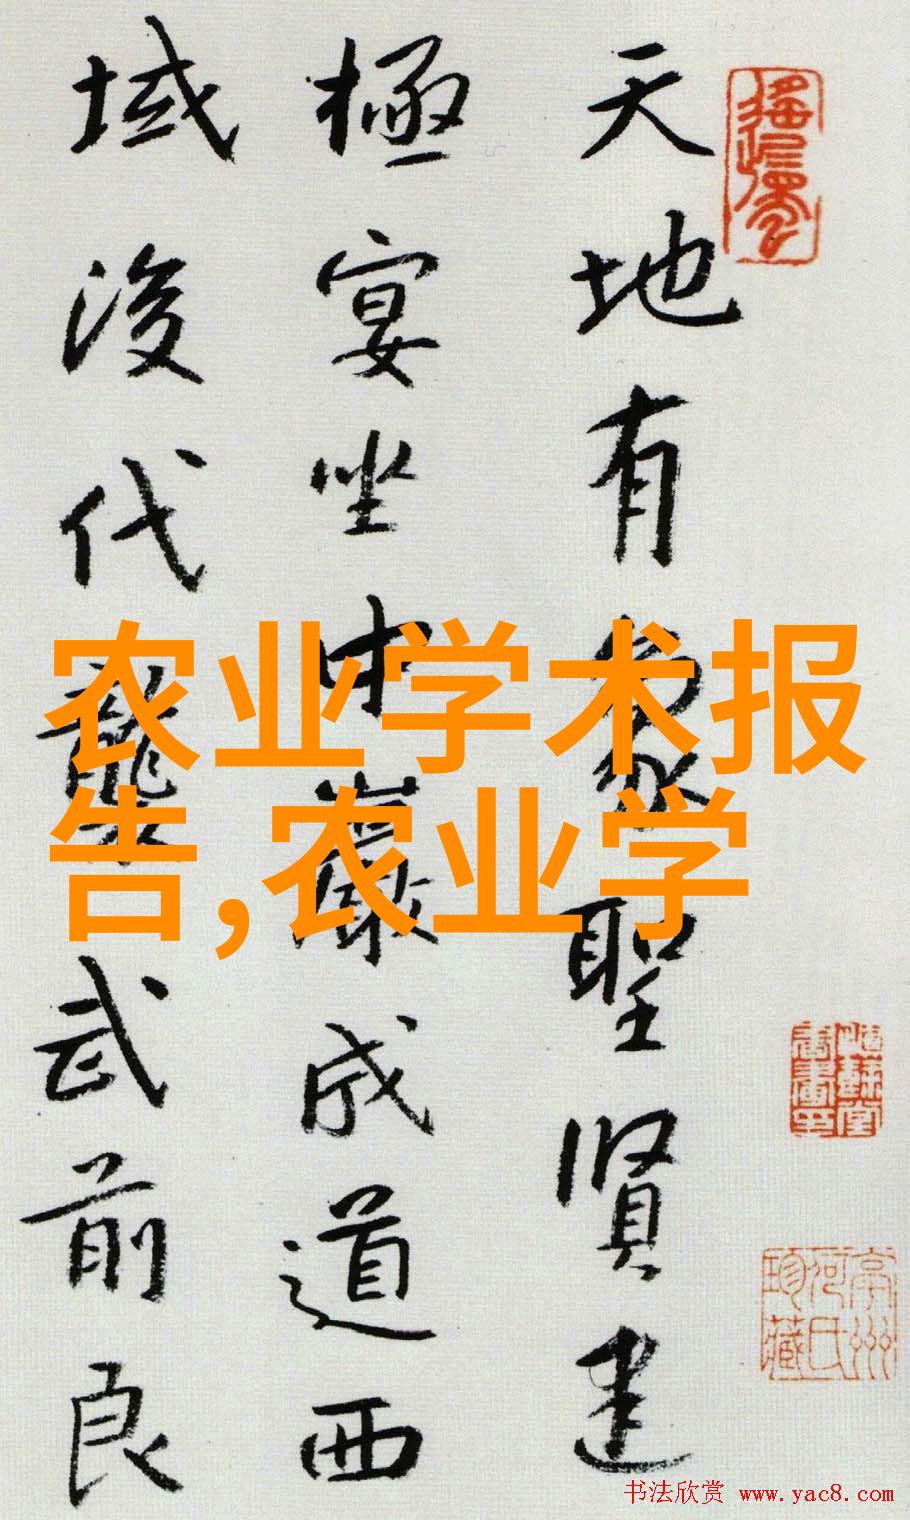 天地有象聖賢建
極宴坐中巖成道西
域後代襲武前良
农业学术报
告,农业学
书法欣赏 www.yac8.com